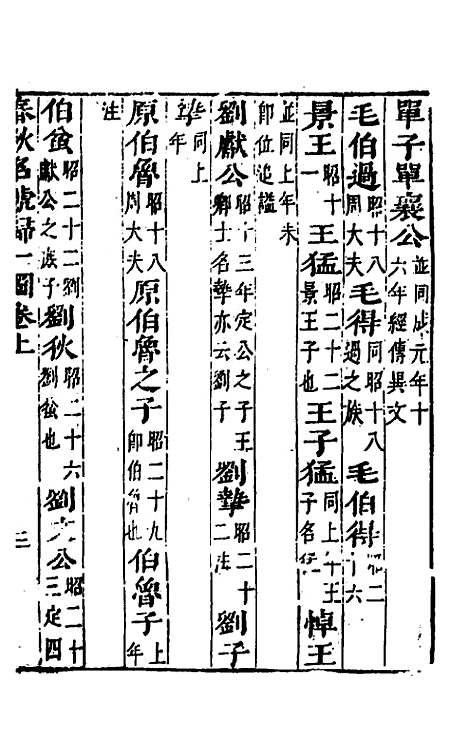 單子單襄公並同成元年十六年經傳異文
毛伯過昭十八周大夫毛得同昭十八過之族毛伯得昭二十六
景王昭十一王猛昭二十二景王子也王子猛同上年王子名猛悼王
並同上年未即位追謚
劉獻公昭十三年定公之子王卿士名摯亦云劉子劉摯昭二十二注劉子
並同上年
原伯魯昭十八周大夫原伯魯之子昭二十九即伯魯也伯魯子上年
注
伯蚠昭二十二劉獻公之族子劉秋昭二十六劉蚠也劉文公昭二十三定四
春秋名號歸一圖卷上 三